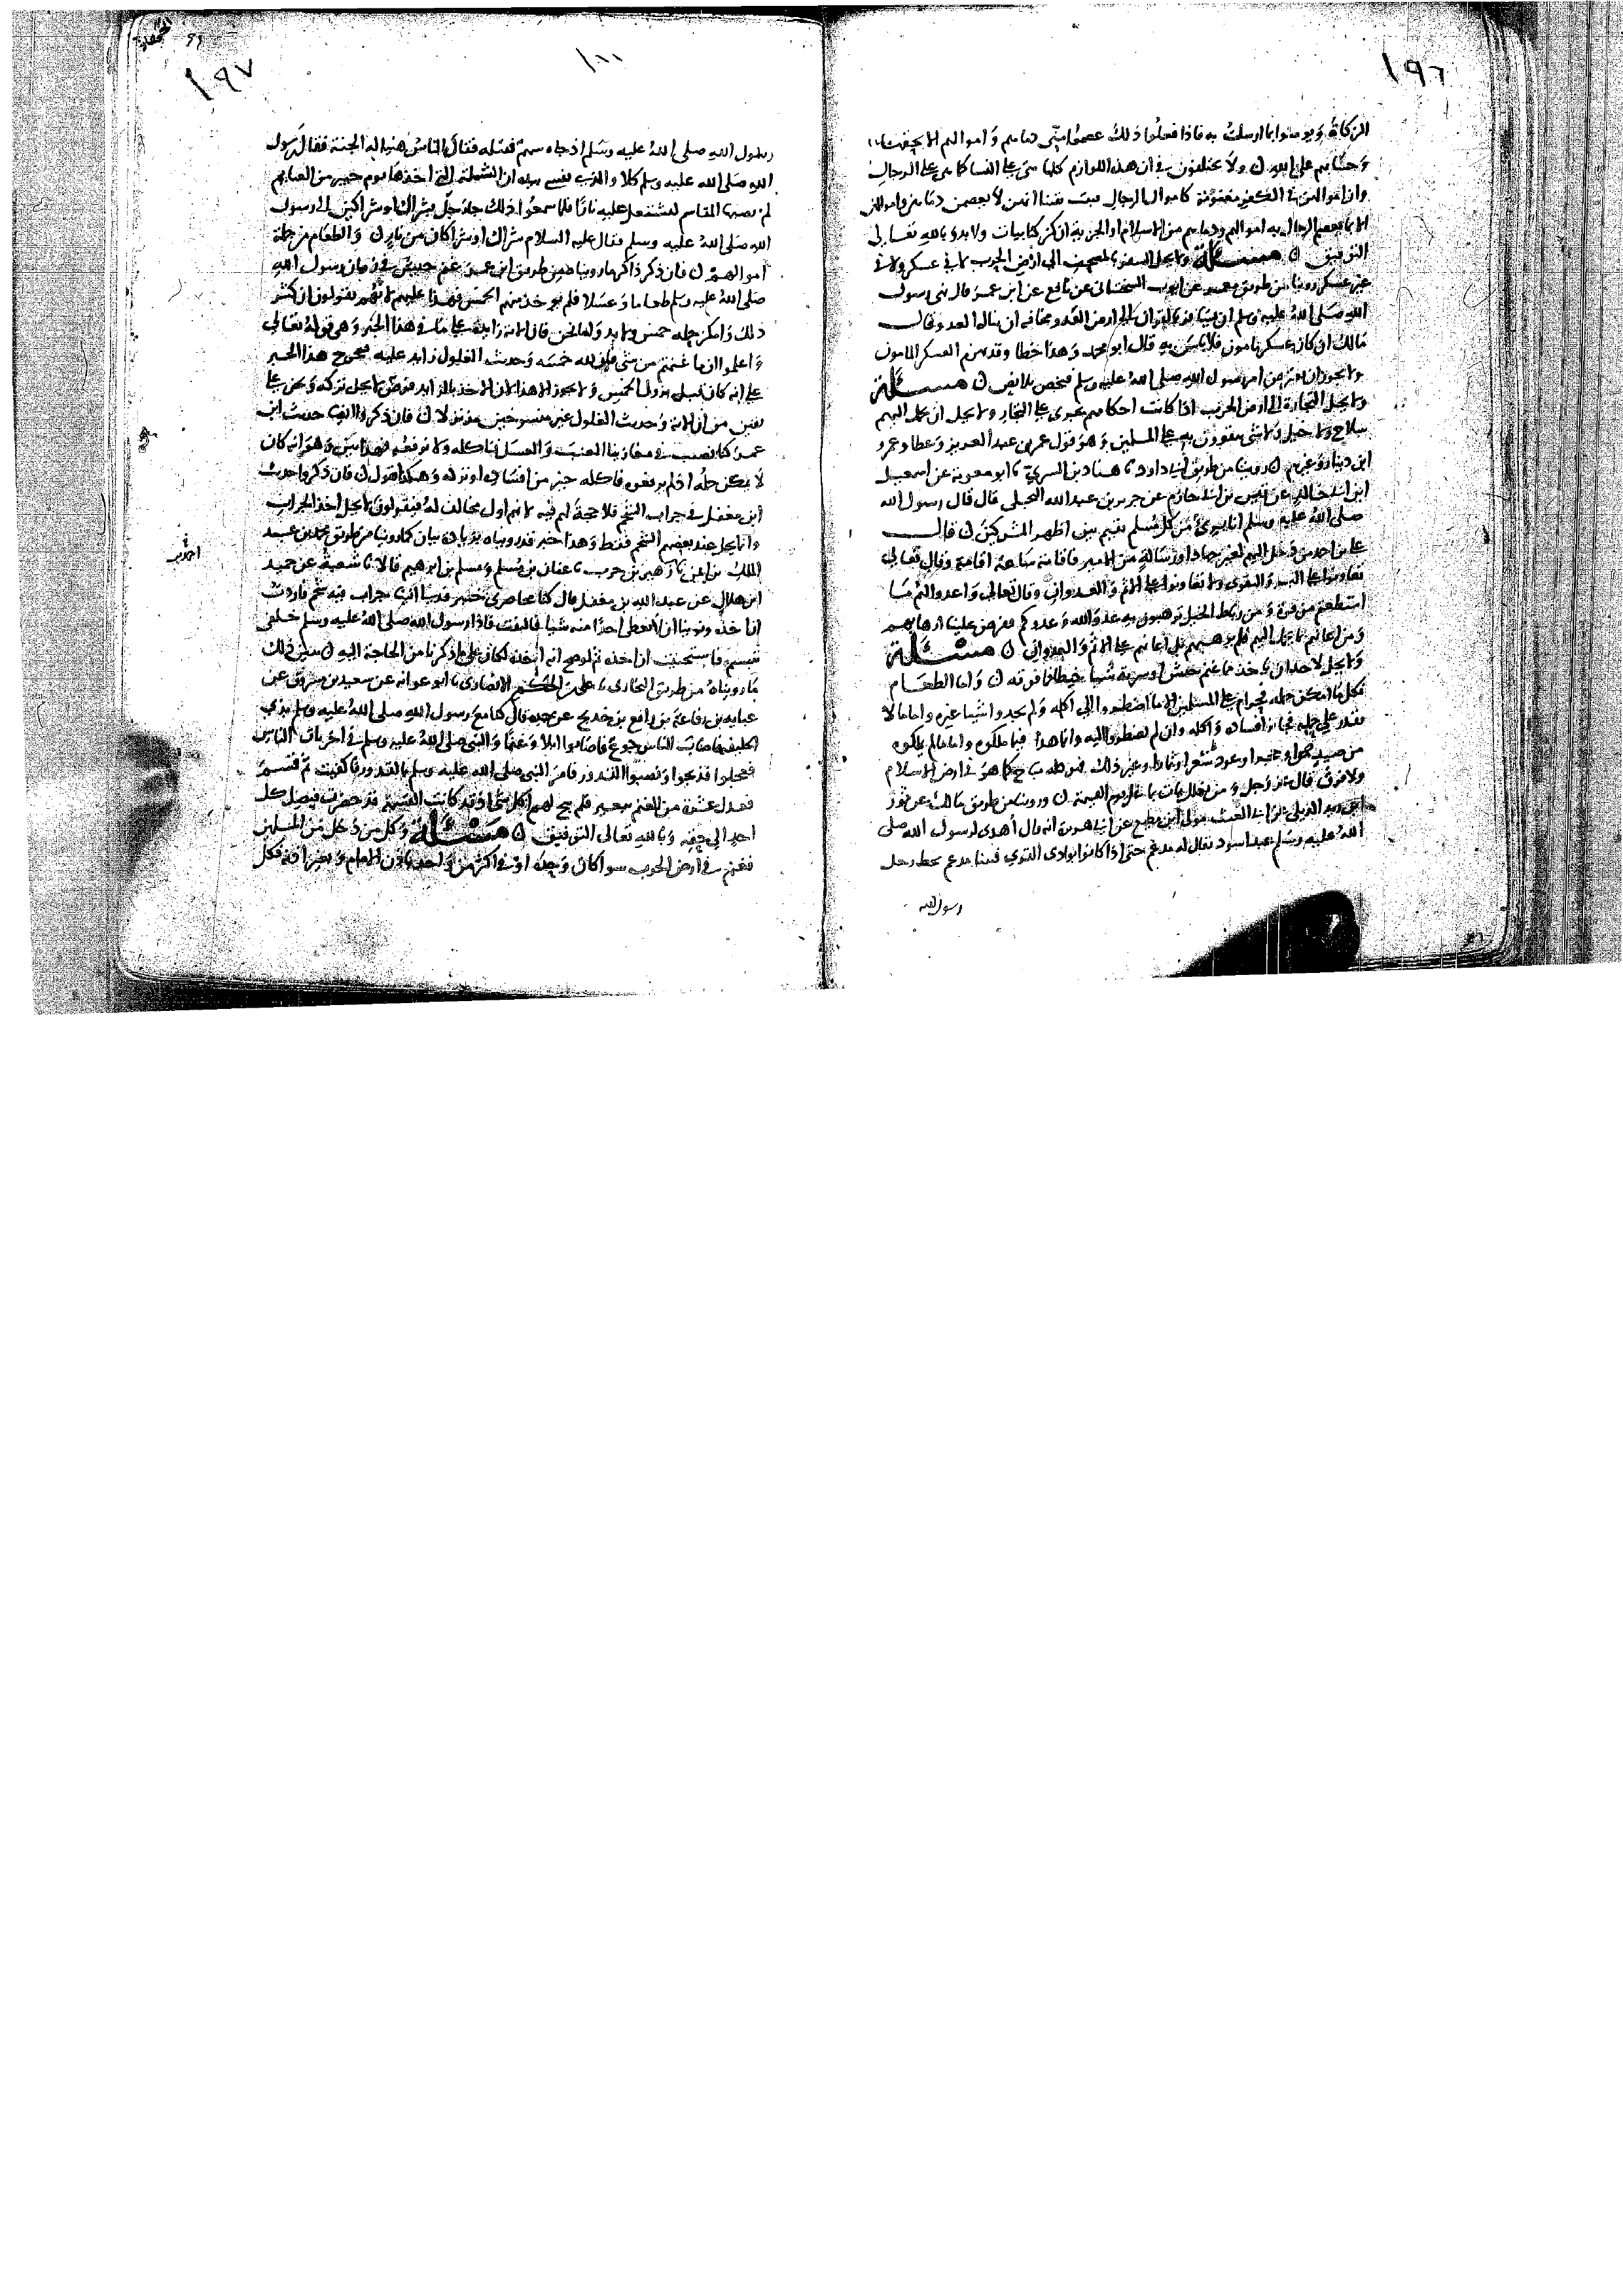 ١٩٦
الزكاة ويومنوا بما ارسلت به فاذا فعلوا ذلك عصموا مني دماهم واموالهم الا بحقها
وحسابهم على الله ن ولا يختلفون في ان هذه اللوازم كلها هي على النسا كما هي على الرجال
وان اموالهن في الكفر مغنومة كاموال الرجال فثبت يقينا انهن لا يعصمن دماهن واموالهن
الا بما يعصم الرجال به اموالهم ودماهم من الاسلام او الجزية ان كن كتابيات ولا بد وبالله تعالى
التوفيق ن مسئلة ولا يحل السفر بالمصحف الى ارض الحرب لا في عسكر ولا في
غير عسكر روينا من طريق عن ايوب السختياني عن نافع عن ابن عمر قال نهى رسول
الله صلى الله عليه وسلم ان يسافر بالقران الى ارض العدو مخافة ان يناله العدو وقال
مالك ان كان عسكر مامون فلا باس به قال ابو محمد وهذا خطا وقد يهزم العسكر المامون
ولا يجوز ان يعترض امر رسول الله صلى الله عليه وسلم فيخص بلا نص ن مسئلة
ولا تحل التجارة الى ارض الحرب اذا كانت احكامهم تجري على التجار ولا يحل ان يحمل اليهم
سلاح ولا خيل ولا شي يتقوون به على المسلمين وهو قول عمر بن عبد العزيز وعطا وعمرو
ابن دينار وغيرهم ن روينا من طريق ابي داود نا هناد بن السري نا ابو معوية عن اسمعيل
ابن ابي خالد عن قيس بن ابي حازم عن جرير بن عبد الله البجلي قال قال رسول الله
صلى الله عليه وسلم انا بري من كل مسلم يقيم بين اظهر المشركين ن قال
علي بن احمد من دخل اليهم لغير جهاد او رسالة من الامير فاقامة ساعة اقامة وقال تعالى
تعاونوا على البر والتقوى ولا تعاونوا على الاثم والعدوان وقال تعالى واعدوا لهم ما
استطعتم من قوة ومن رباط الخيل ترهبون به عدو الله وعدوكم ففرض علينا ارهابهم
ومن اعانهم بما يحمل اليهم فلم يرهبهم بل اعانهم على الاثم والعدوان ن مسئلة
ولا يحل لاحد ان ياخذ مما غنم جيش او سرية شيا خيطا فما فوقه ن واما الطعام
فكل ما امكن حمله فحرام على المسلمين الا ما اضطروا الى اكله ولم يجدوا شيا غيره واما ما لا
يقدر على حمله فجائز افساده واكله وان لم يضطروا اليه وانما هذا فيما ملكوه واما ما لم يملكوه
من صيد او حجر او عود شعرا او ثمار او غير ذلك فهو كله مباح كما هو في ارض الاسلام
ولا فرق قال عز وجل ومن يغلل يات بما غل يوم القيمة ن وروينا من طريق مالك عن ثور
ابن زيد الديلي عن ابي الغيث مولى ابن مطيع عن ابي هريرة انه قال اهدى لرسول الله صلى
الله عليه وسلم عبد اسود يقال له مدعم حتى اذا كانوا بوادي القرى فبينا مدعم يحط رحل
رسول الله
١٩٧
١٠٠
رسول الله صلى الله عليه وسلم اذ جاه سهم فقتله فقال الناس هنيا له الجنة فقال رسول
الله صلى الله عليه وسلم كلا والذي نفسي بيده ان الشملة التي اخذها يوم خيبر من الغنايم
لم تصبها المقاسم لتشتعل عليه نارا فلما سمعوا ذلك جا رجل بشراك او شراكين الى رسول
الله صلى الله عليه وسلم فقال عليه السلام شراك او شراكان من نار ن والطعام من جملة
اموالهم ن فان ذكر ذاكر ما روينا من طريق ابن عمر غنم جيش في زمان رسول الله
صلى الله عليه وسلم طعاما وعسلا فلم يوخذ منهم الخمس فهذا عليهم لانهم يقولون ان كثر
ذلك وامكن حمله خمس ولا بد ولعل نحن قال الاية زايدة على ما في هذا الخبر وهي قوله تعالى
واعلموا انما غنمتم من شي فان لله خمسه وحديث الغلول زايد عليه فخرج هذا الخبر
على انه كان قبل نزول الخميس ولا يجوز الا هذا لان الاخذ بالزايد فرض لا يحل تركه ونحن على
يقين من ان الاية وحديث الغلول غير منسوخين مذ نزلا ن فان ذكروا ايضا حديث ابن
عمر كنا نصيب في مغازينا العنب والعسل فناكله ولا نرفعه فهذا بين وهو انه كان
لا يمكن حمله اذ لم يرفعوه فاكله خير من افساده او تركه وهكذا نقول ن فان ذكروا حديث
ابن مغفل في جراب الشحم فلا حجة لهم فيه لانهم اول مخالف له فيقولون لا يحل اخذ الجراب
وانما يحل عند بعضهم الشحم فقط وهذا خبر قد رويناه بزيادة بيان كما روينا من طريق محمد بن عبد
الملك بن ايمن نا زهير بن حرب نا عفان بن مسلم ومسلم بن ابرهيم قالا نا شعبة عن حميد
ابن هلال عن عبد الله بن مغفل قال كنا محاصري خيبر فدلي الينا جراب فيه شحم فاردت
ان اخذه ونوينا ان لا نعطي احدا منه شيا فالتفت فاذا رسول الله صلى الله عليه وسلم خلفي
يتبسم فاستحييت ان اخذه ثم لو صح انه اخذه لكان على ما ذكرنا من الحاجة اليه ن يبين ذلك
ما رويناه من طريق البخاري نا علي بن الحكم الانصاري نا ابو عوانة عن سعيد بن مسروق عن
عباية بن رفاعة بن رافع بن خديج عن جده قال كنا مع رسول الله صلى الله عليه وسلم بذي
الحليفة فاصاب الناس جوع فاصابوا ابلا وغنما والنبي صلى الله عليه وسلم في اخريات الناس
فعجلوا فذبحوا ونصبوا القدور فامر النبي صلى الله عليه وسلم بالقدور فاكفيت ثم قسم
فعدل عشرة من الغنم ببعير فلم يبح لهم اكل شي اذ قد كانت القسمة قد حضرت فيصل كل
احد الى حقه وبالله تعالى التوفيق ن مسئلة وكل من دخل من المسلمين
فغنم في ارض الحرب سوا كان وحده او في اكثر من واحد باذن الامام وبغير اذنه فكل